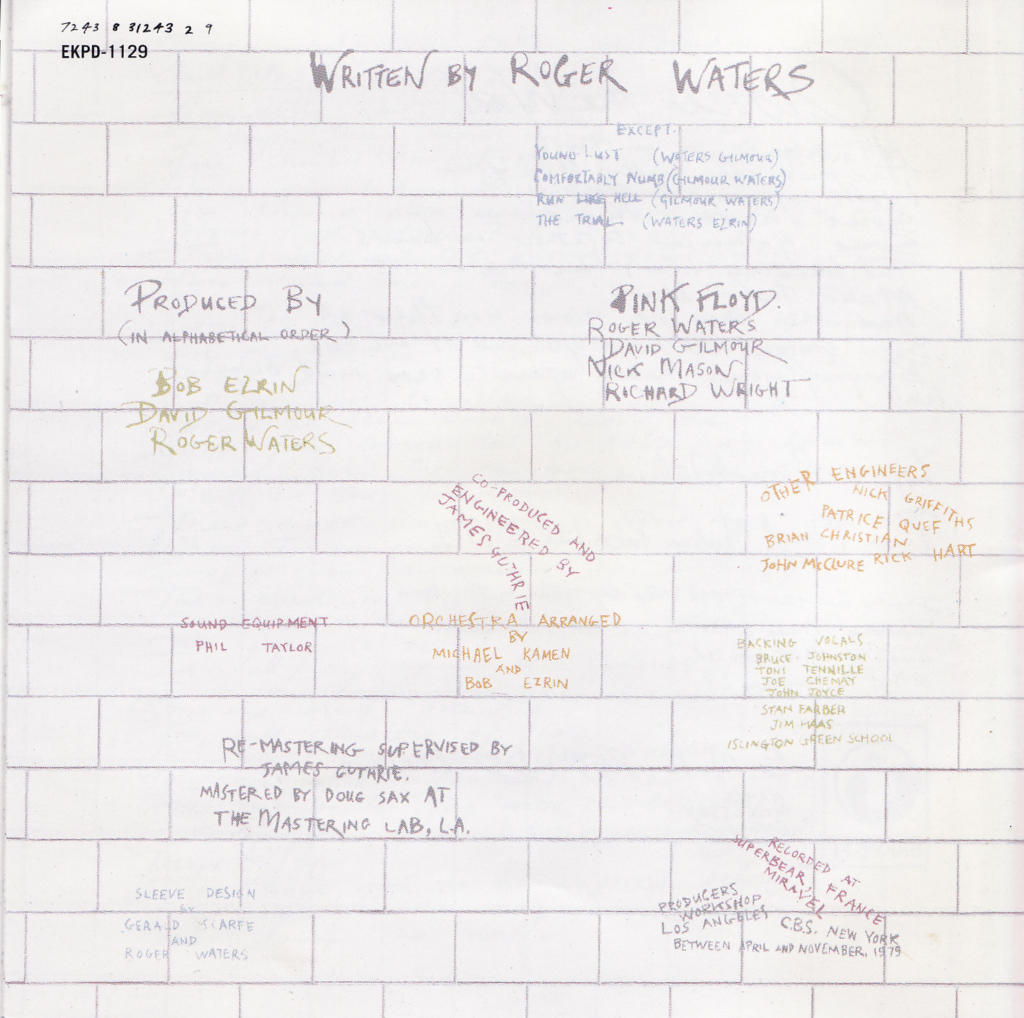 7243 8 31243 2 9
EKPD-1129
WRITTEN BY ROGER WATERS
EXCEPT.
YOUNG LUST (WATERS GILMOUR)
COMFORTABLY NUMB (GILMOUR WATERS)
RUN LIKE HELL (GILMOUR WATERS)
THE TRIAL (WATERS EZRIN)
PRODUCED BY
(IN ALPHABETICAL ORDER)
BOB EZRIN
DAVID GILMOUR
ROGER WATERS
PINK FLOYD.
ROGER WATERS
DAVID GILMOUR
NICK MASON
RICHARD WRIGHT
CO-PRODUCED AND
ENGINEERED BY
JAMES GUTHRIE
OTHER ENGINEERS
NICK GRIFFITHS
PATRICE QUEF
BRIAN CHRISTIAN
RICK HART
JOHN McCLURE
SOUND EQUIPMENT
PHIL TAYLOR
ORCHESTRA ARRANGED
BY
MICHAEL KAMEN
AND
BOB EZRIN
BACKING VOCALS.
BRUCE JOHNSTON
TONI TENNILLE
JOE CHEMAY
JOHN JOYCE
STAN FARBER
JIM HAAS
ISLINGTON GREEN SCHOOL
RE-MASTERING SUPERVISED BY
JAMES GUTHRIE.
MASTERED BY DOUG SAX AT
THE MASTERING LAB, L.A.
SLEEVE DESIGN
BY
GERALD SCARFE
AND
ROGER WATERS
RECORDED AT
SUPERBEAR, FRANCE
MIRAVEL
PRODUCERS
WORKSHOP
LOS ANGELES
C.B.S. NEW YORK
BETWEEN APRIL AND NOVEMBER, 1979